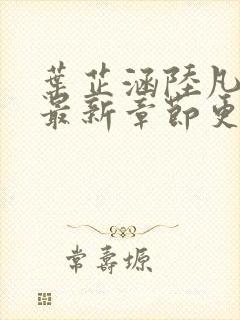 葉芷涵陸凡
最新章節更
常壽塬